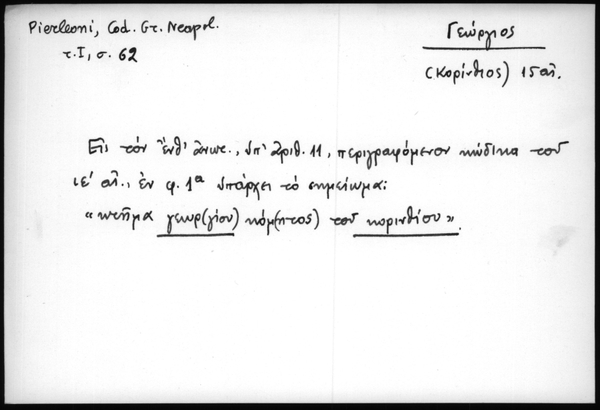 Pierleoni, Cod. Gr. Neapol.
τ. I, σ. 62
Γεώργιος
(Κορίνθιος) 15 αἰ.
Εἰς τὸν ἔνθ' ἀνωτ., ὑπ' ἀριθ. 11, περιγραφόμενον κώδικα τοῦ
ιε' αἰ., ἐν φ. 1α ὑπάρχει τὸ σημείωμα:
«κτῆμα γεωρ(γίου) κόμ(ητος) τοῦ κορινθίου».